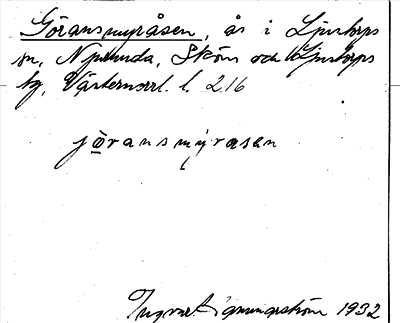 Göransmyråsen, ås i Ljustorps
sn, Njurunda, Sköns och Ljustorps
tg, Västernorrl. l. 216
jöransmyrasen
Ingvar 1932